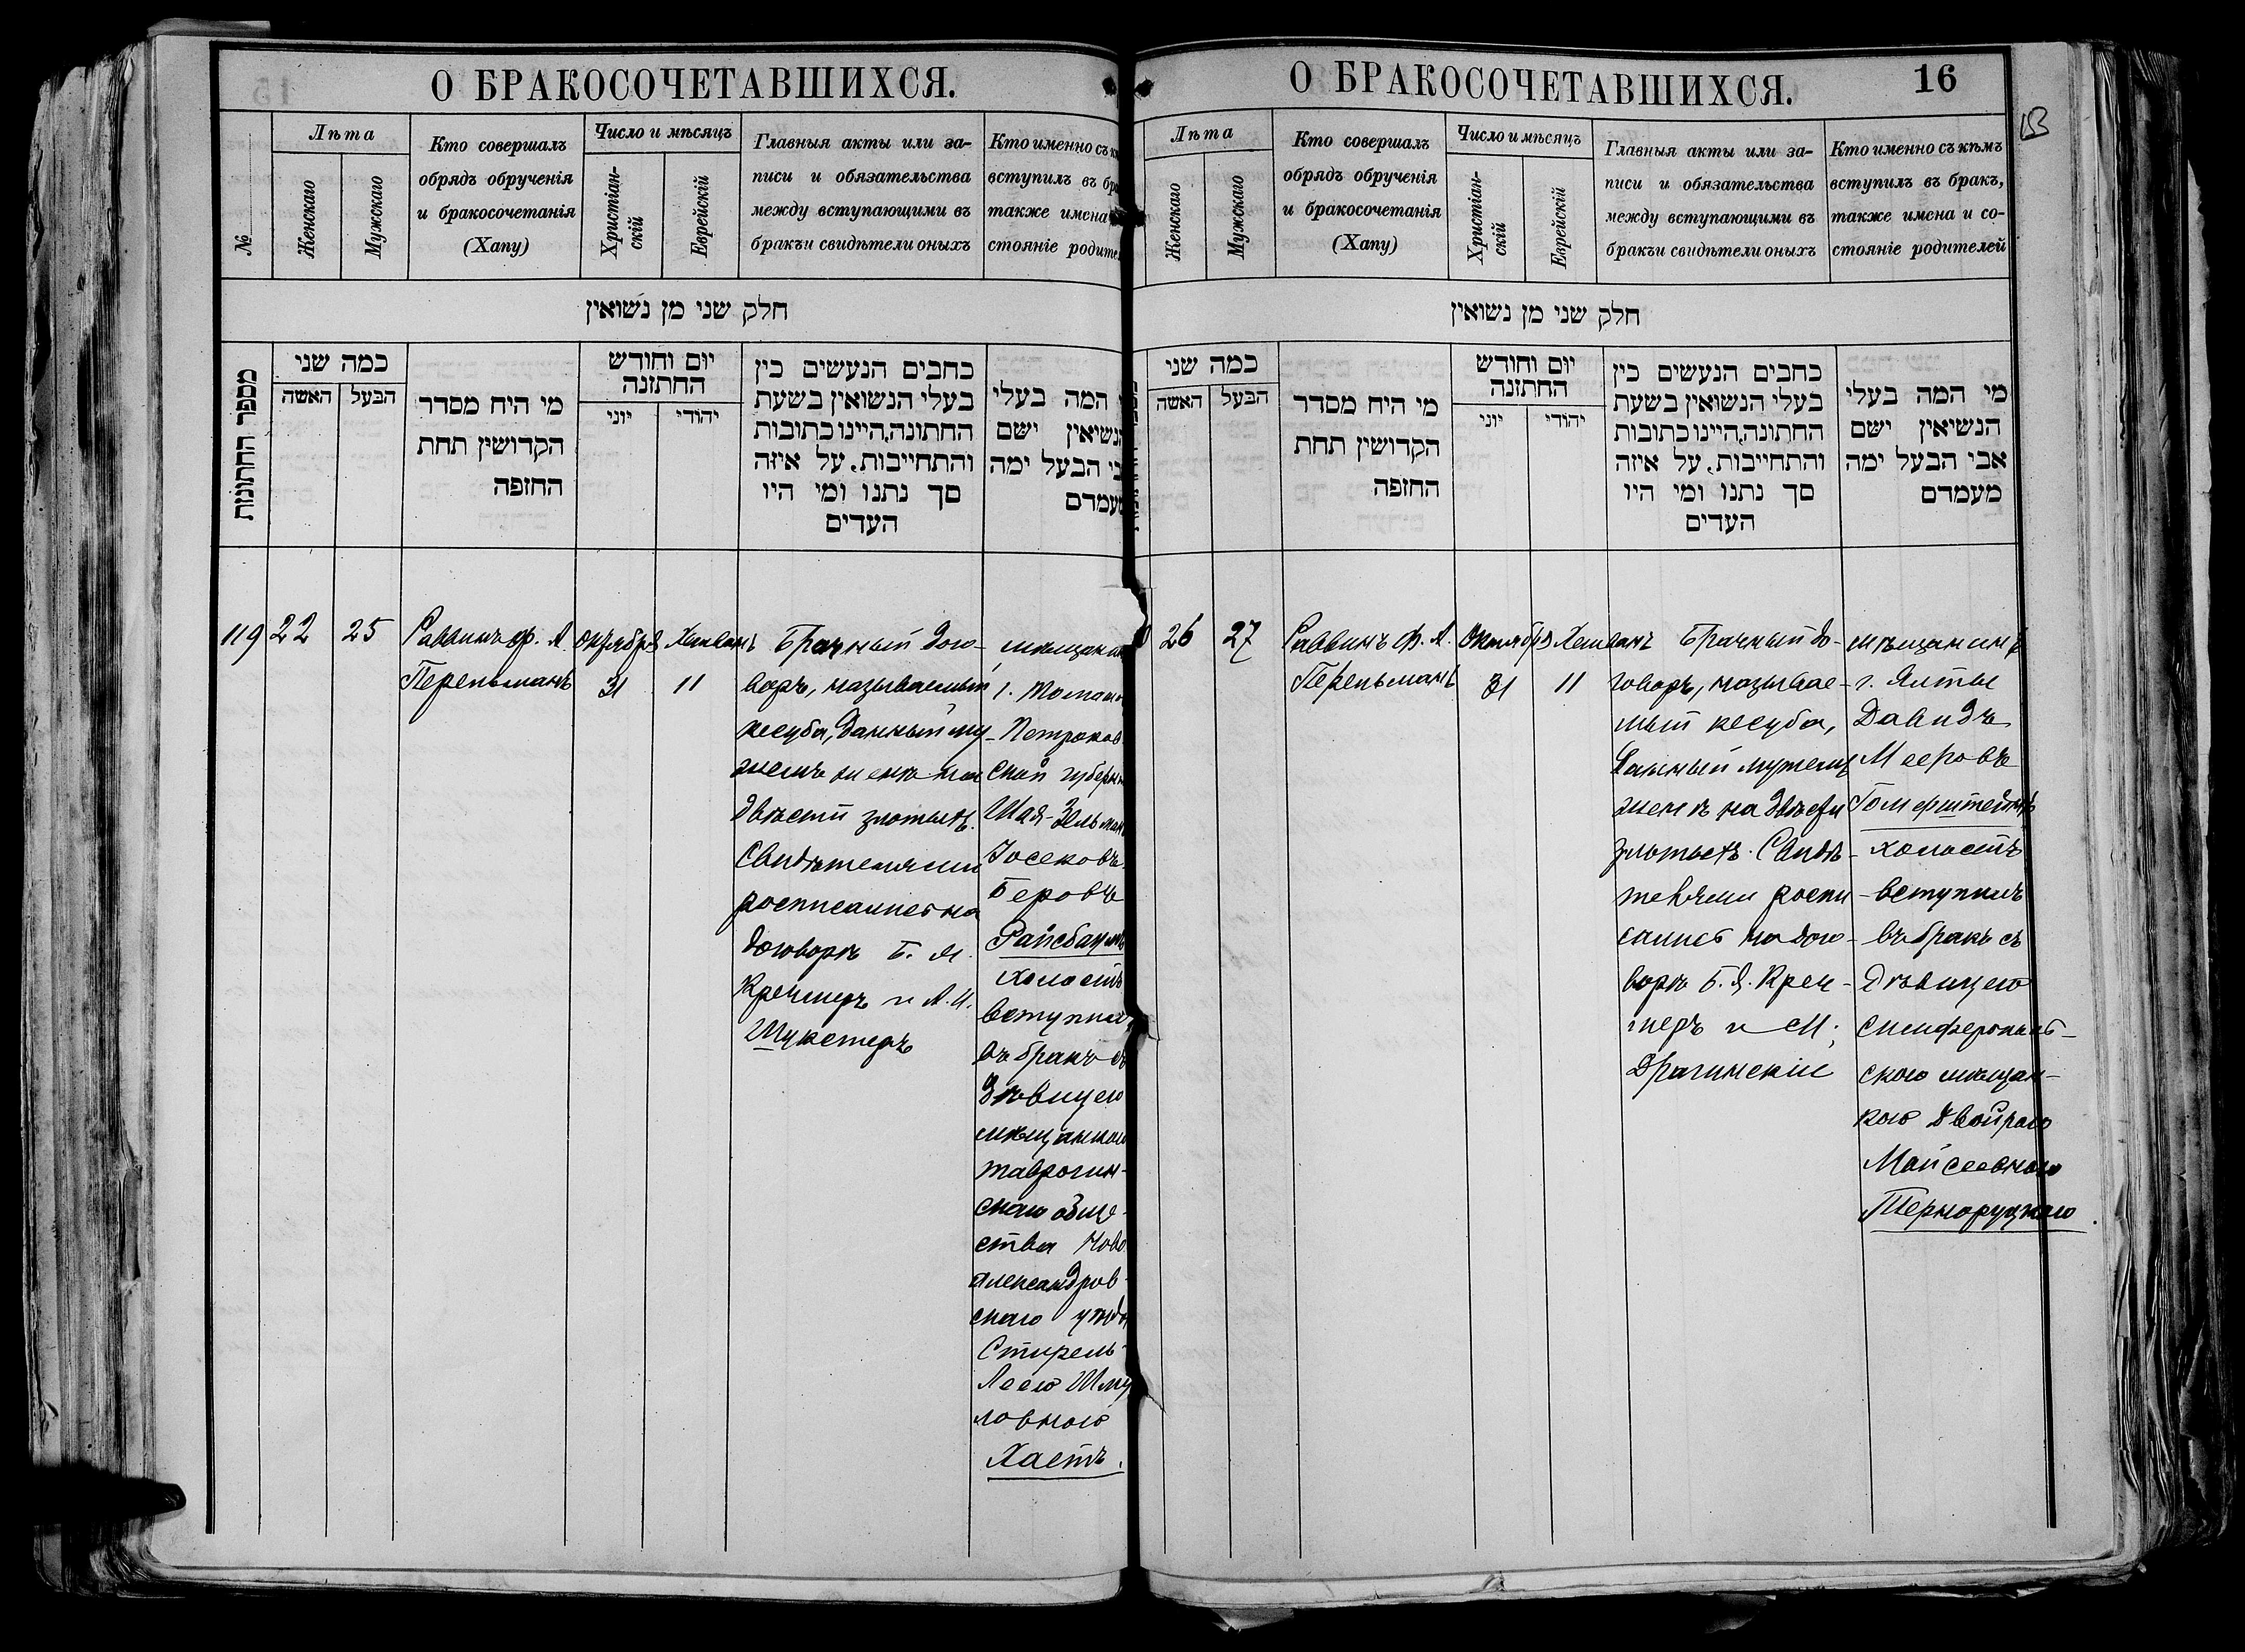 О БРАКОСОЧЕТАВШИХСЯ.
№
Лѣта
Женскаго
Мужскаго
Кто совершалъ
обрядъ обрученія
и бракосочетанія
(Хапу)
Число и мѣсяцъ
Христіан-
скій
Еврейскій
Главныя акты или за-
писи и обязательства
между вступающими въ
бракъи свидѣтели оныхъ
Кто именно съ
вступилъ въ
также имена
стояніе
חלק שני מן נשואין
מספר החתונות
כמה שני
האשה
הבעל
מי היח מסדר
הקדושין תחת
החזפה
יום וחודש
החתזנה
יוני
יהודי
כחבים הנעשים כין
בעלי הנשואין בשעת
החתונה,היינו כתובות
והתחייבות, על איזה
סך נתנו ומי היו
העדים
המה בעלי
הנשיאין ישם
הבעל ימה
119
22
25
Раввинъ Ф. А.
Перельманъ
Октября
31
Хешванъ
11
Брачный дого-
воръ, называемый
кесуба, данный му-
жемъ женѣ на
двѣсти злотыхъ.
Свидѣтелями
росписались на
договорѣ Б. Я.
Кречмеръ и А. И.
Шукстеръ
г.
Петроков
ской губерн
Шая-Зельман
Іосековъ
Беровъ
Райсбаумъ
холостъ
вступил
въ бракъ съ
дѣвицею
мѣщанкою
таврогин-
скаго обще-
ства Ново
александров-
скаго уѣзда
Стирель-
Леею Шму
ловною
Хастъ.
О БРАКОСОЧЕТАВШИХСЯ.
16
Лѣта
Женскаго
Мужскаго
Кто совершалъ
обрядъ обрученія
и бракосочетанія
(Хапу)
Число и мѣсяцъ
Христіан-
скій
Еврейскій
Главныя акты или за-
писи и обязательства
между вступающими въ
бракъи свидѣтели оныхъ
Кто именно съ кѣмъ
вступилъ въ бракъ,
также имена и со-
стояніе родителей
חלק שני מן נשואין
כמה שני
האשה
הבעל
מי היח מסדר
הקדושין תחת
החזפה
יום וחודש
החתזנה
יוני
יהודי
כחבים הנעשים כין
בעלי הנשואין בשעת
החתונה,היינו כתובות
והתחייבות, על איזה
סך נתנו ומי היו
העדים
מי המה בעלי
הנשיאין ישם
אבי הבעל ימה
מעמדם
26
27
Раввинъ Ф. А.
Перельманъ
Октября
31
Хешванъ
11
Брачный до-
говоръ, называе-
мый кесуба,
данный мужемъ
женѣ на двѣсти
злотыхъ. Свидѣ-
телями роспи-
сались на дого-
ворѣ Б. Я. Креч-
меръ и М.
Драгинскій
мѣщанинъ
г. Ялты
Давидъ
Мееровъ
Гомерштейнъ
холостъ
вступилъ
въ бракъ съ
дѣвицею
симферополь-
скою мѣщан-
кою Двойрою
Мойсеевною
Терноруцкою.